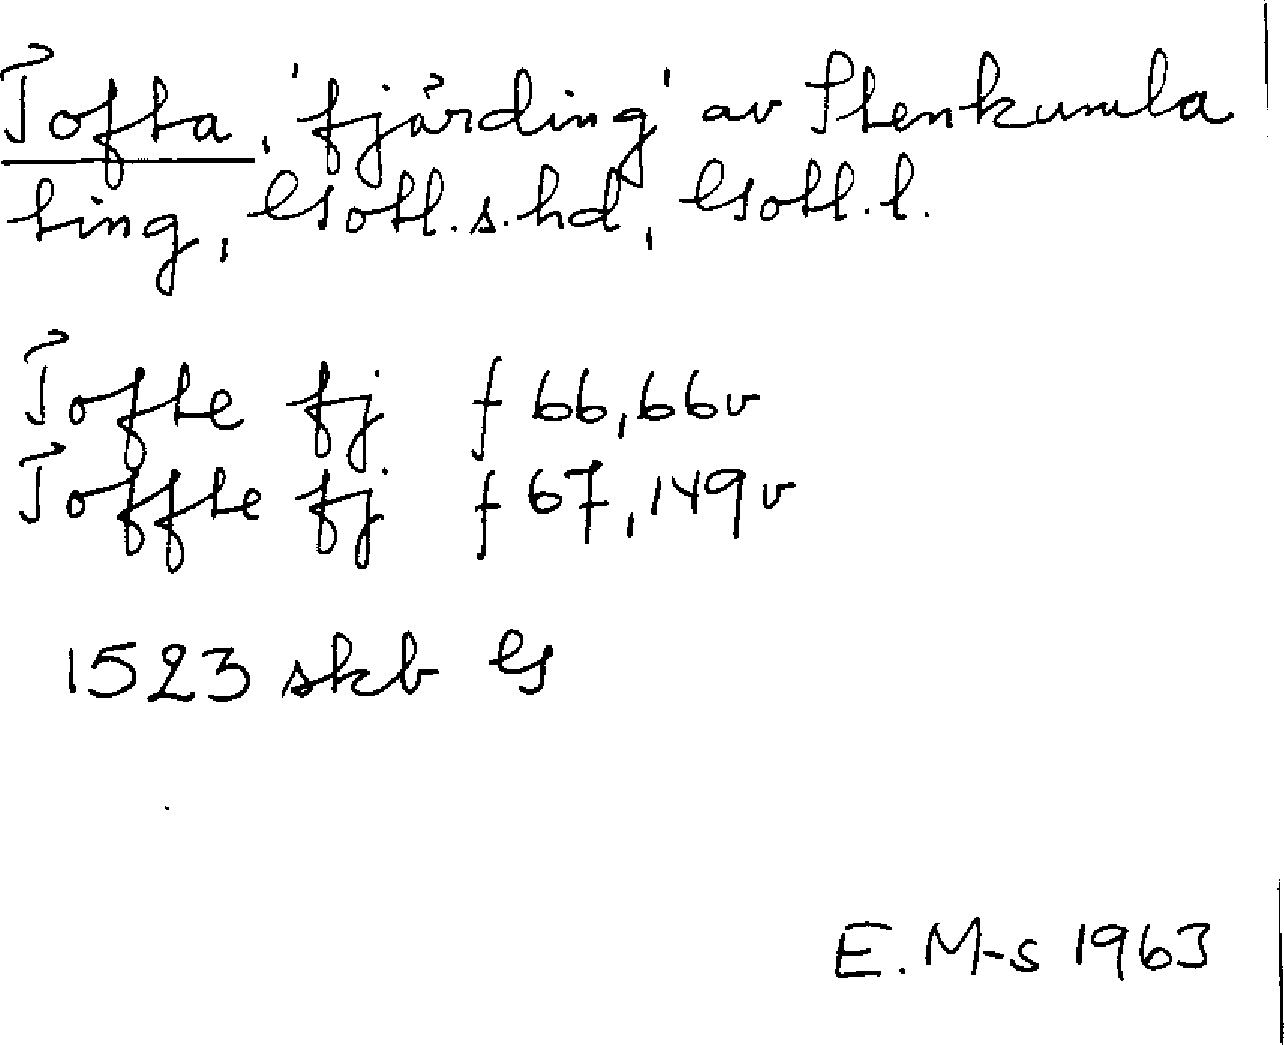 Tofta, 'fjärding' av Stenkumla
ting, Gotl.s.hd, Gotl.l.
Tofte fj f 66,66v
Toffte fj f 67,149v
1523 skb G
E. M-s 1963